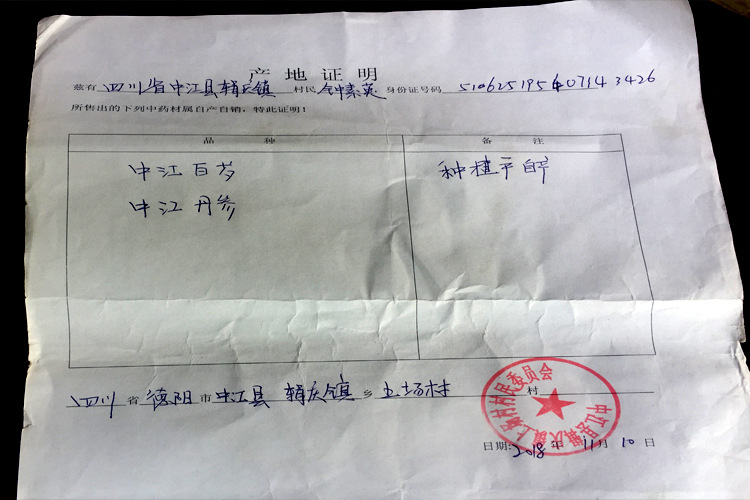 产地证明
兹有 四川省中江县辑庆镇 村民 钟素英 身份证号码 510625195407143426
所售出的下列中药材属自产自销，特此证明！
品种 备注
中江白芍 种植
中江丹参
四川 省 德阳 市 中江县 辑庆镇 乡 上场村 村
中江县辑庆镇上场村村民委员会
日期: 2018 年 11 月 10 日